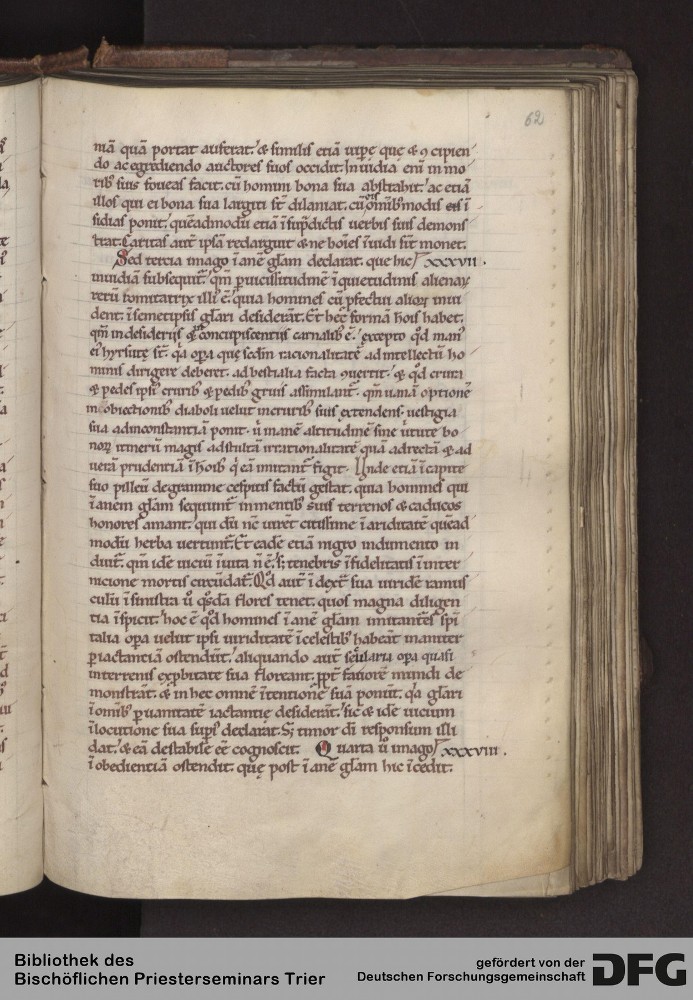 62
mā quā portat auferat. & similis etiā uipę que & ꝯcipien
do ac egrediendo auctores suos occidit. Inuidia eni in mo
rib; suis foueas facit. cū homini bona sua abstrahit. ac etiā
illos qui ei bona sua largiri st̄ dilaniat. cū omib; modis ei ī
sidias ponit. quēadmodū etiā ī sup̄dictis uerbis suis demons
trat. Caritas aut̄ ipsā redarguit & ne hoīes īuidi sīt monet.
Sed tercia imago ī anē gl̄am declarat. que hic xxxvii.
inuidiā subsequit̄. qm̄ p uicissitudinē īquietudinis alienaꝝ
rerū somitatrix illi ē. quia homines cū pfectui alioꝝ inui
dent. ī semetipsis gl̄ari desiderāt. Et hęc formā hoīs habet.
qm̄ in desideriis & concupiscentiis carnalib; ē. excepto qd̄ man
ei hyrsutę st̄. qa opa que sc̄dm racionalitatē ad intellectū ho
minis dirigere deberet. ad bestialia facta ꝯuertit. & qd̄ crura
& pedes ipsi cruribꝰ & pedibꝰ gruis assimilant̄. qm̄ uanā optionē
in obiectionibꝰ diaboli uelut in cruribꝰ suis extendens. uestigia
sua ad inconstantiā ponit. ū inanē altitudinē sine uirtute bo
noꝝ itinerū magis ad stultā irrationalitatē quā ad rectā & ad
uerā prudentiā ī hoībꝰ q̄ eā imitant̄ figit. Unde etiā ī capite
suo pilleū de gramine cespitis factū gestat. quia homines qui
īanem gl̄am sequunt̄ in mentibꝰ suis terrenos & caducos
honores amant. qui dū nc̄ uiret citissime ī ariditatē quēad
modū herba uertunt̄. Et eadē etiā nigro indumento in
duit̄. qm̄ idē uiciū ī uita n̄ ē. s; tenebris īfidelitatis ī inter
nicione mortis circūdat̄. Qd̄ aut̄ ī dext̄ sua uiridē ramus
culū ī sinistra ū qs̄dā flores tenet. quos magna diligen
tia īspicit. hoc ē qd̄ homines īanē gl̄am imitantes spī
talia opa uelut ipsi uiriditatē ī celestibꝰ habeāt inaniter
p iactantiā ostendūt. aliquando aut̄ sęularia opa quasi
in terrenis exp̄bitate sua floreant. ppt̄ fauorē mundi de
monstrāt. & in hec omnē ītentionē suā ponūt. qa glari
ī omibꝰ p uanitatē iactantię desiderāt. sic & idē uicium
ī locutione sua supꝰ declarat. S; timor dī responsum illi
dat. & eā detestabilē ēē cognoscit. Quarta ū imago xxxviii.
īobedientiā ostendit. quę post ī anē gl̄am hic īcedit.
Bibliothek des
Bischöflichen Priesterseminars Trier
gefördert von der
Deutschen Forschungsgemeinschaft
DFG